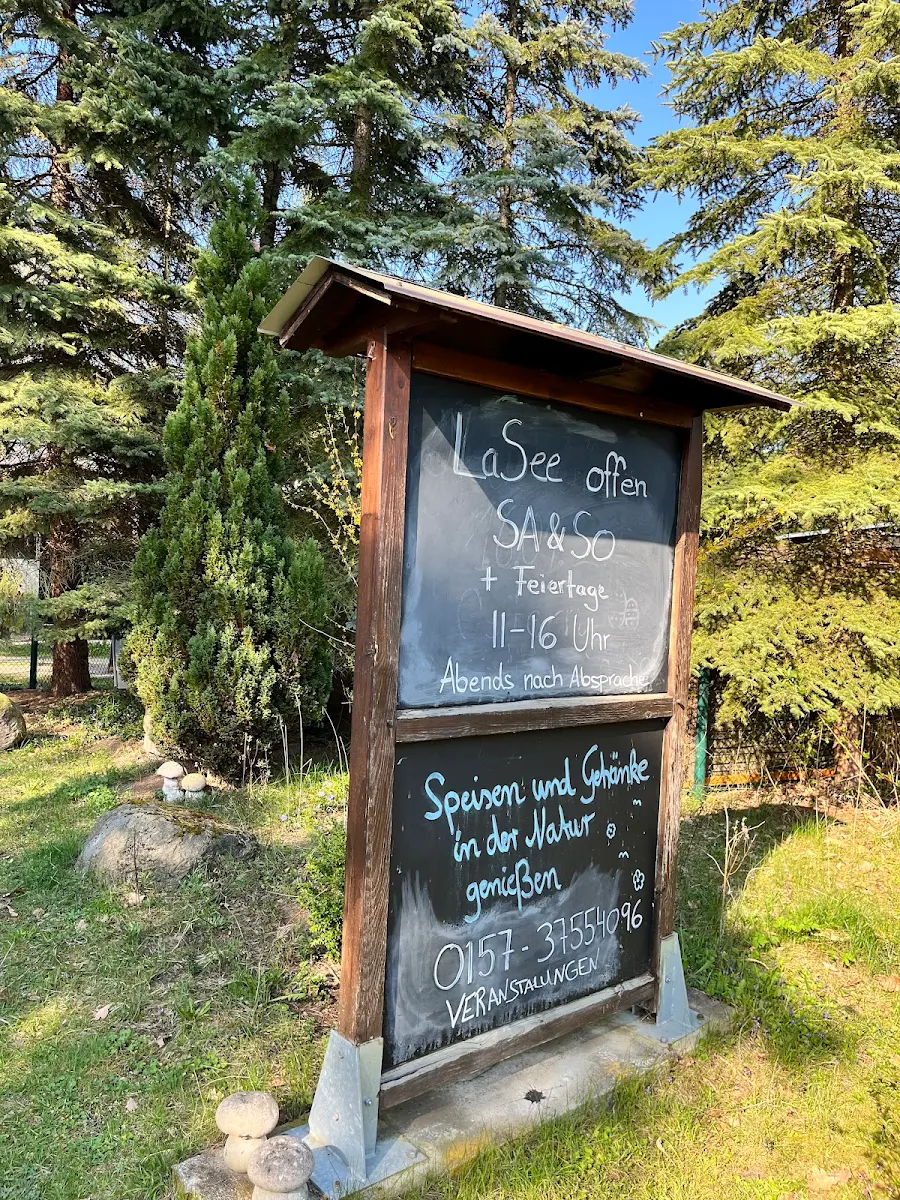 LaSee offen
SA & SO
+ Feiertage
11-16 Uhr
Abends nach Absprache
Speisen und Gehänke
in der Natur
genießen
0157-37554096
VERANSTALUNGEN